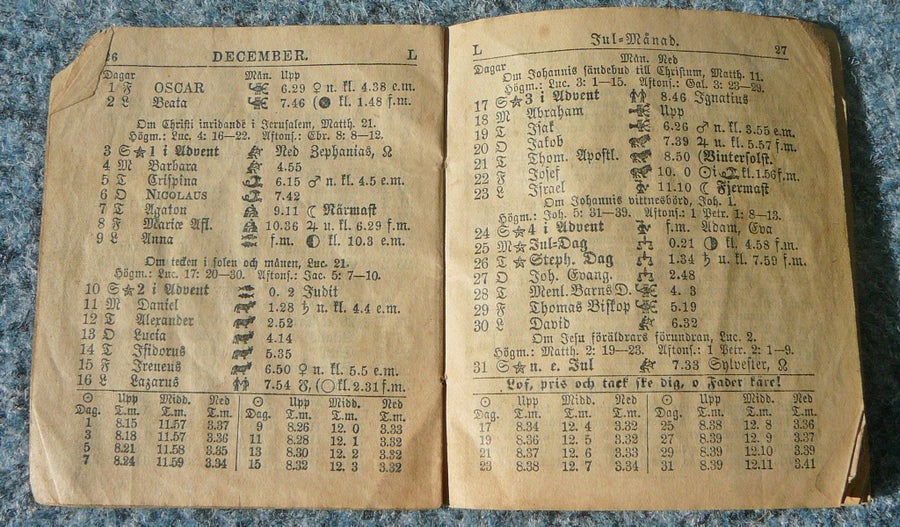 26 DECEMBER. L
Dagar Mån. Upp
1 F OSCAR 6.29 ♀ n. kl. 4.38 e.m.
2 L Beata 7.46 (● kl. 1.48 f.m.
Om Christi inridande i Jerusalem, Matth. 21.
Högm.: Luc. 4: 16—22. Aftons.: Ebr. 8: 8—12.
3 S ★ 1 i Advent Ned Zephanias, ☊
4 M Barbara 4.55
5 T Crispina 6.15 ♂ n. kl. 4.5 e.m.
6 O NICOLAUS 7.42
7 T Agaton 9.11 ☾ Närmast
8 F Mariæ Afl. 10.36 ♃ u. kl. 6.29 f.m.
9 L Anna f.m. ◐ kl. 10.3 e.m.
Om tecken i solen och månen, Luc. 21.
Högm.: Luc. 17: 20—30. Aftons.: Jac. 5: 7—10.
10 S ★ 2 i Advent 0. 2 Judit
11 M Daniel 1.28 ♄ n. kl. 4.4 e.m.
12 T Alexander 2.52
13 O Lucia 4.14
14 T Isidorus 5.35
15 F Ireneus 6.50 ♀ n. kl. 5.5 e.m.
16 L Lazarus 7.54 ☋, (○ kl. 2.31 f.m.
☉ Upp Midd. Ned ☉ Upp Midd. Ned
Dag. T.m. T.m. T.m. Dag. T.m. T.m. T.m.
1 8.15 11.57 3.37 9 8.26 12. 0 3.33
3 8.18 11.57 3.36 11 8.28 12. 1 3.32
5 8.21 11.58 3.35 13 8.30 12. 2 3.32
7 8.24 11.59 3.34 15 8.32 12. 3 3.32
L Jul-Månad. 27
Dagar Mån. Ned
Om Johannis sändebud till Christum, Matth. 11.
Högm.: Luc. 3: 1—15. Aftons.: Gal. 3: 23—29.
17 S ★ 3 i Advent 8.46 Ignatius
18 M Abraham Upp
19 T Isak 6.26 ♂ n. kl. 3.55 e.m.
20 O Jakob 7.39 ♃ u. kl. 5.57 f.m.
21 T Thom. Apostl. 8.50 (Vintersolst.
22 F Josef 10. 0 ☉ i ♑ kl. 1.56 f.m.
23 L Israel 11.10 ☾ Fjermast
Om Johannis vittnesbörd, Joh. 1.
Högm.: Joh. 5: 31—39. Aftons.: 1 Petr. 1: 8—13.
24 S ★ 4 i Advent f.m. Adam, Eva
25 M ★ Jul-Dag 0.21 ◑ kl. 4.58 f.m.
26 T ★ Steph. Dag 1.34 ♄ u. kl. 7.59 f.m.
27 O Joh. Evang. 2.48
28 T Menl. Barns D. 4. 3
29 F Thomas Biskop 5.19
30 L David 6.32
Om Jesu föräldrars förundran, Luc. 2.
Högm.: Matth. 2: 19—23. Aftons.: 1 Petr. 2: 1—9.
31 S ★ n. e. Jul 7.33 Sylvester, ☊
Lof, pris och tack ske dig, o Fader käre!
☉ Upp Midd. Ned ☉ Upp Midd. Ned
Dag. T.m. T.m. T.m. Dag. T.m. T.m. T.m.
17 8.34 12. 4 3.32 25 8.38 12. 8 3.36
19 8.36 12. 5 3.32 27 8.39 12. 9 3.37
21 8.37 12. 6 3.33 29 8.39 12.10 3.39
23 8.38 12. 7 3.34 31 8.39 12.11 3.41